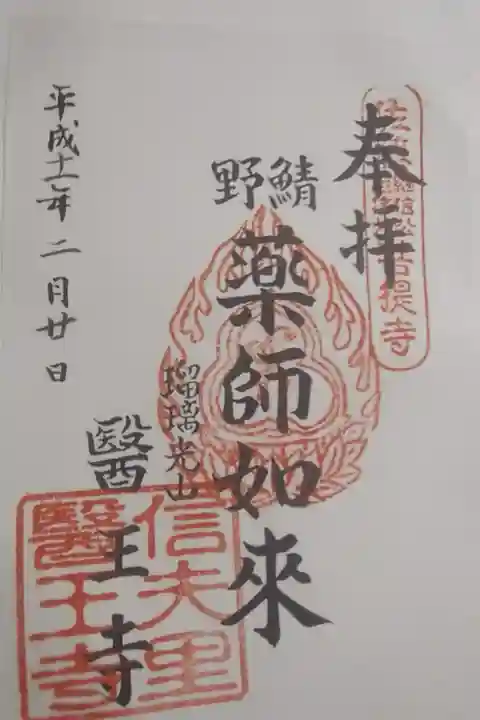 奉拝
鯖野
薬師如來
瑠璃光山
醫王寺
平成十一年二月廿日
信夫里
醫王寺
継信忠信菩提寺